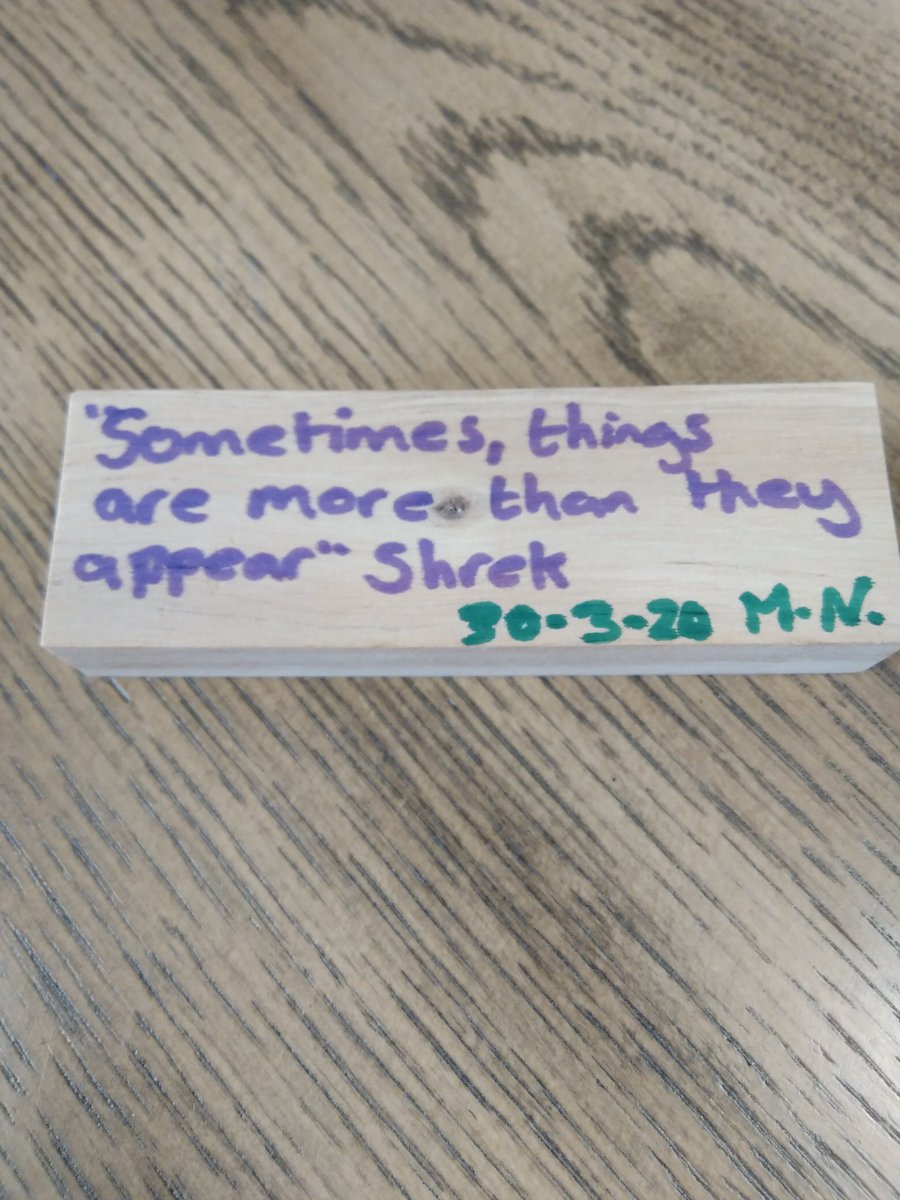 "Sometimes, things
are more than they
appear" Shrek
30-3-20 M.N.